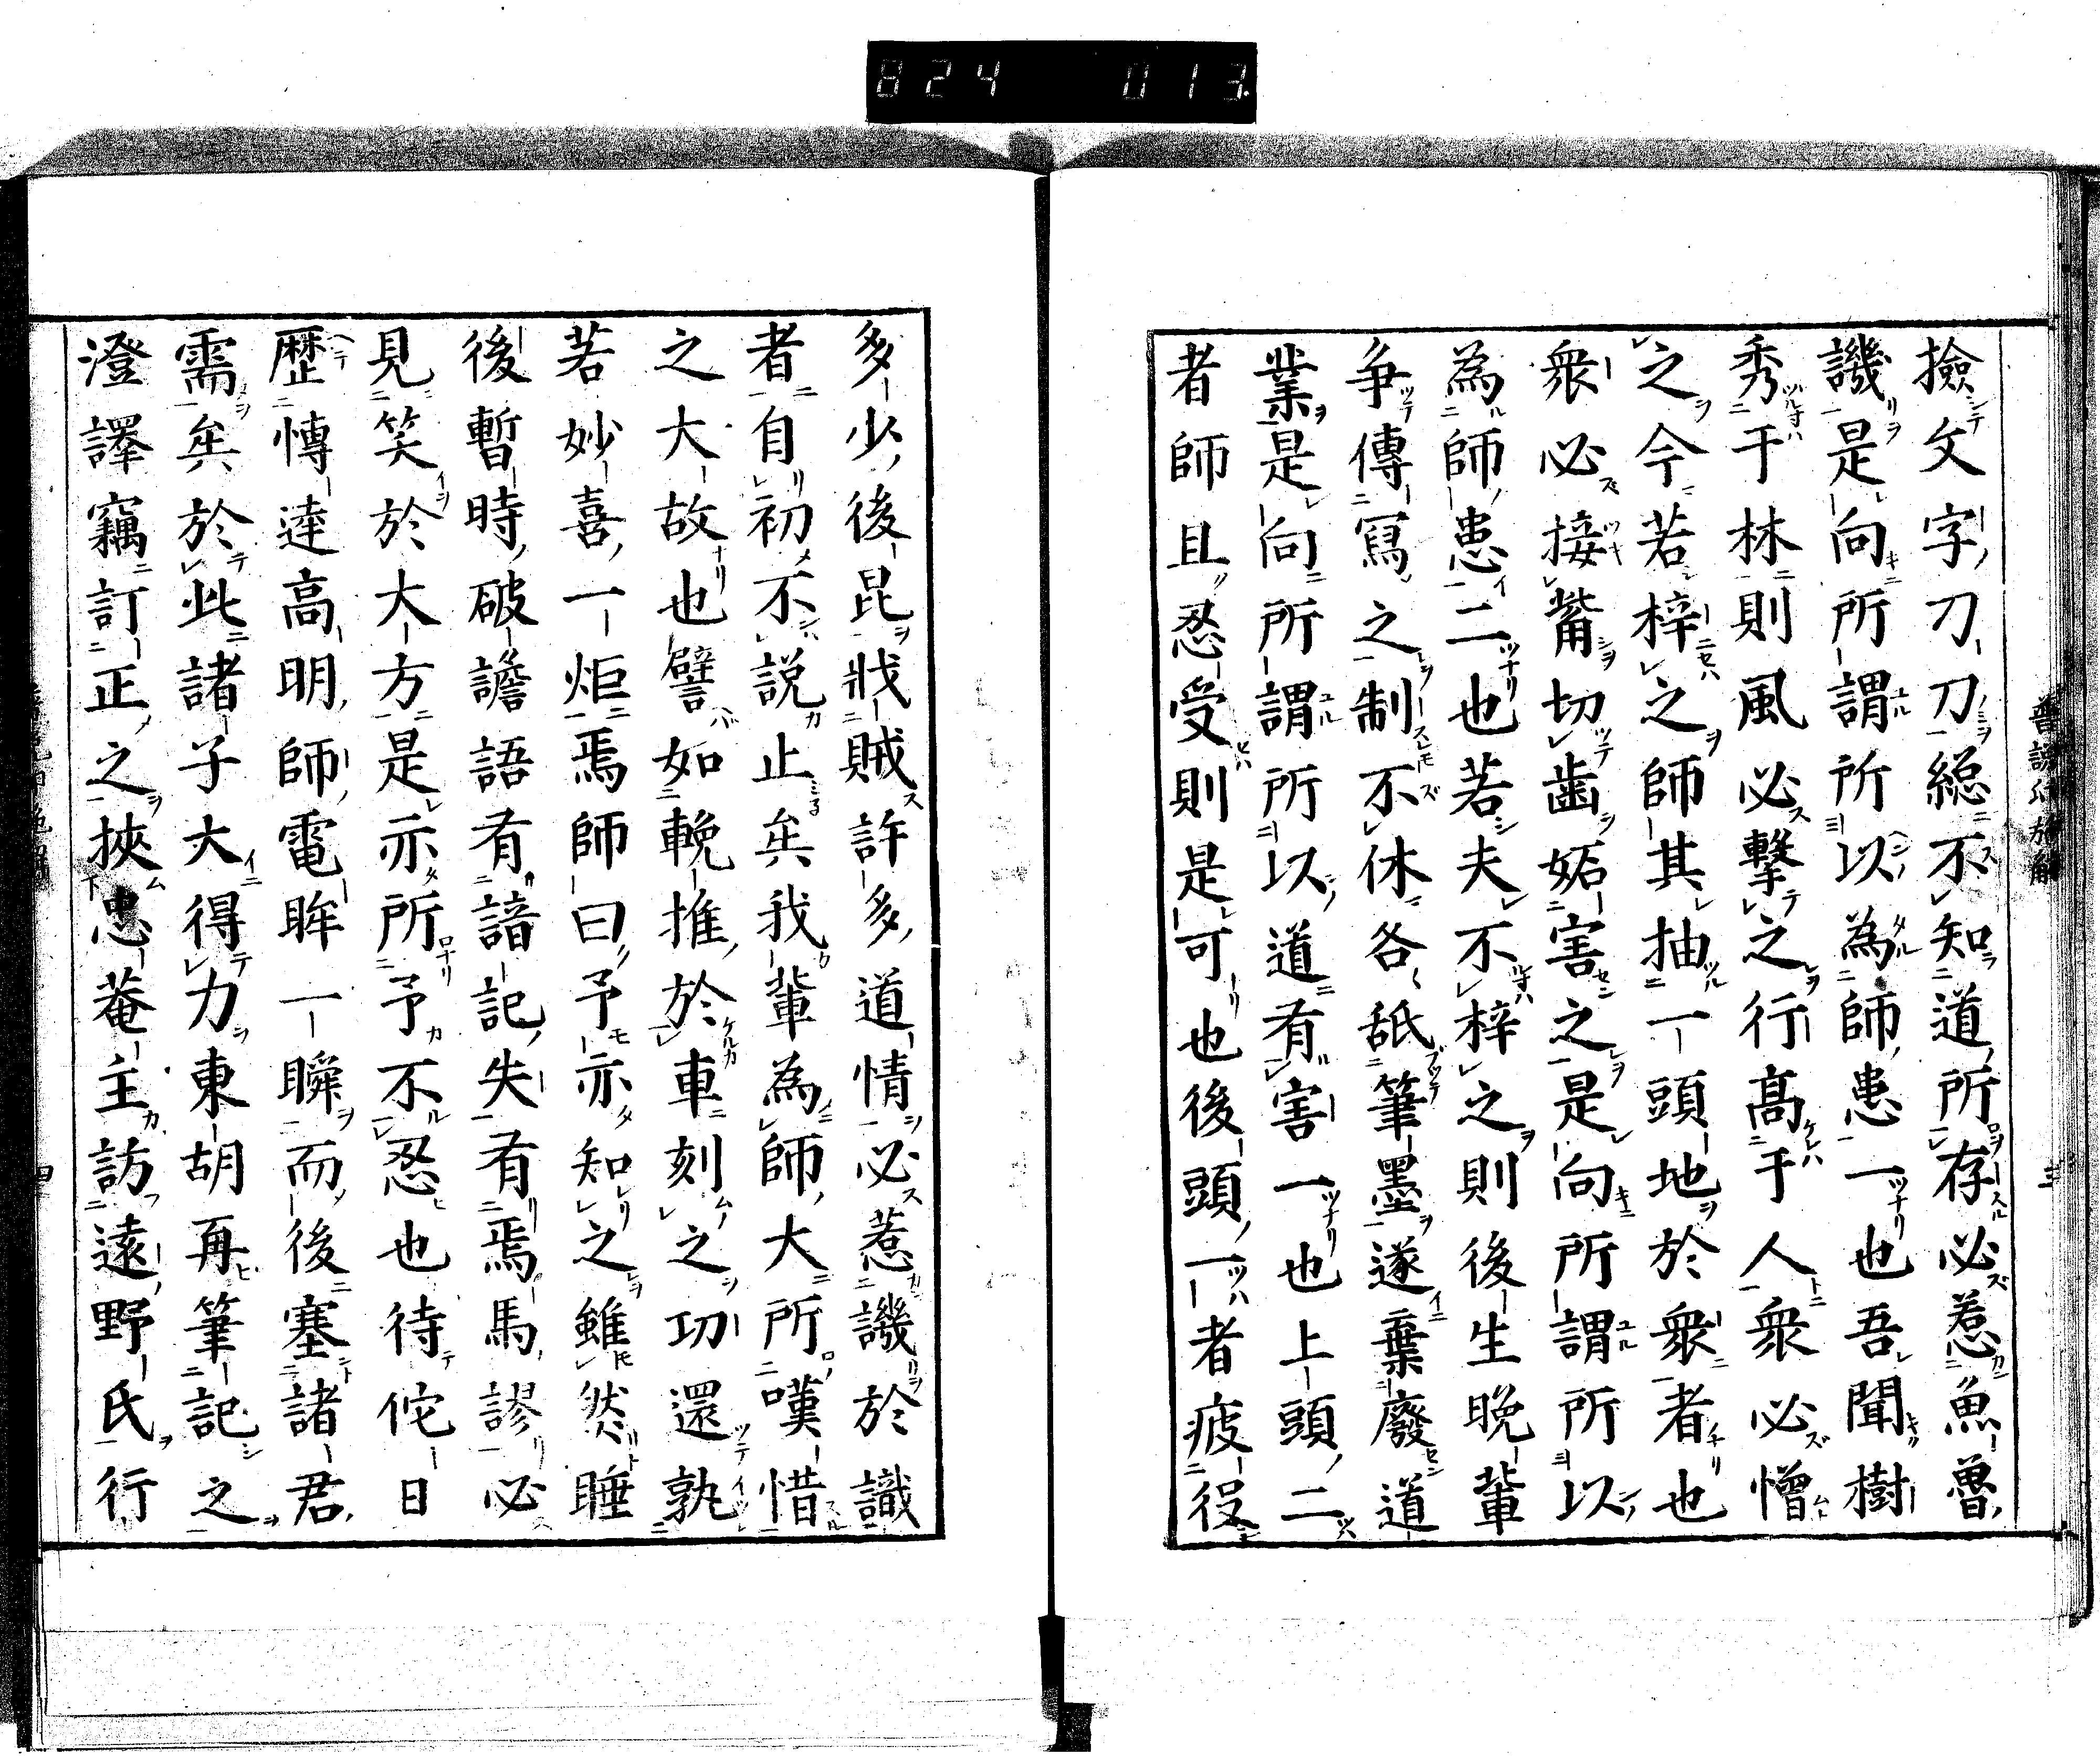 824 013
撿文字刀刀総不知道所存必惹魚魯
譏是向所謂所以為師患一也吾聞樹
秀于林則風必擊之行髙于人衆必憎
之今若梓之師其抽一頭地於衆者也
衆必接觜切歯妬害之是向所謂所以
為師患二也若夫不梓之則後生晩輩
争傳寫之制不休各舐筆墨遂棄廢道
業是向所謂所以道有害一也上頭二
者師且忍受則是可也後頭一者疲役
多少後昆戕賊許多道情必惹譏於識
者自初不説止矣我輩為師大所嘆惜
之大故也譬如輓推於車刻之功還孰
若妙喜一炬焉師曰予亦知之雖然睡
後暫時破譫語有諳記失有焉馬謬必
見笑於大方是亦所予不忍也待佗日
歴慱達高明師電眸一瞬而後塞諸君
需矣於此諸子大得力東胡再筆記之
澄譯竊訂正之挾忠菴主訪遠野氏行